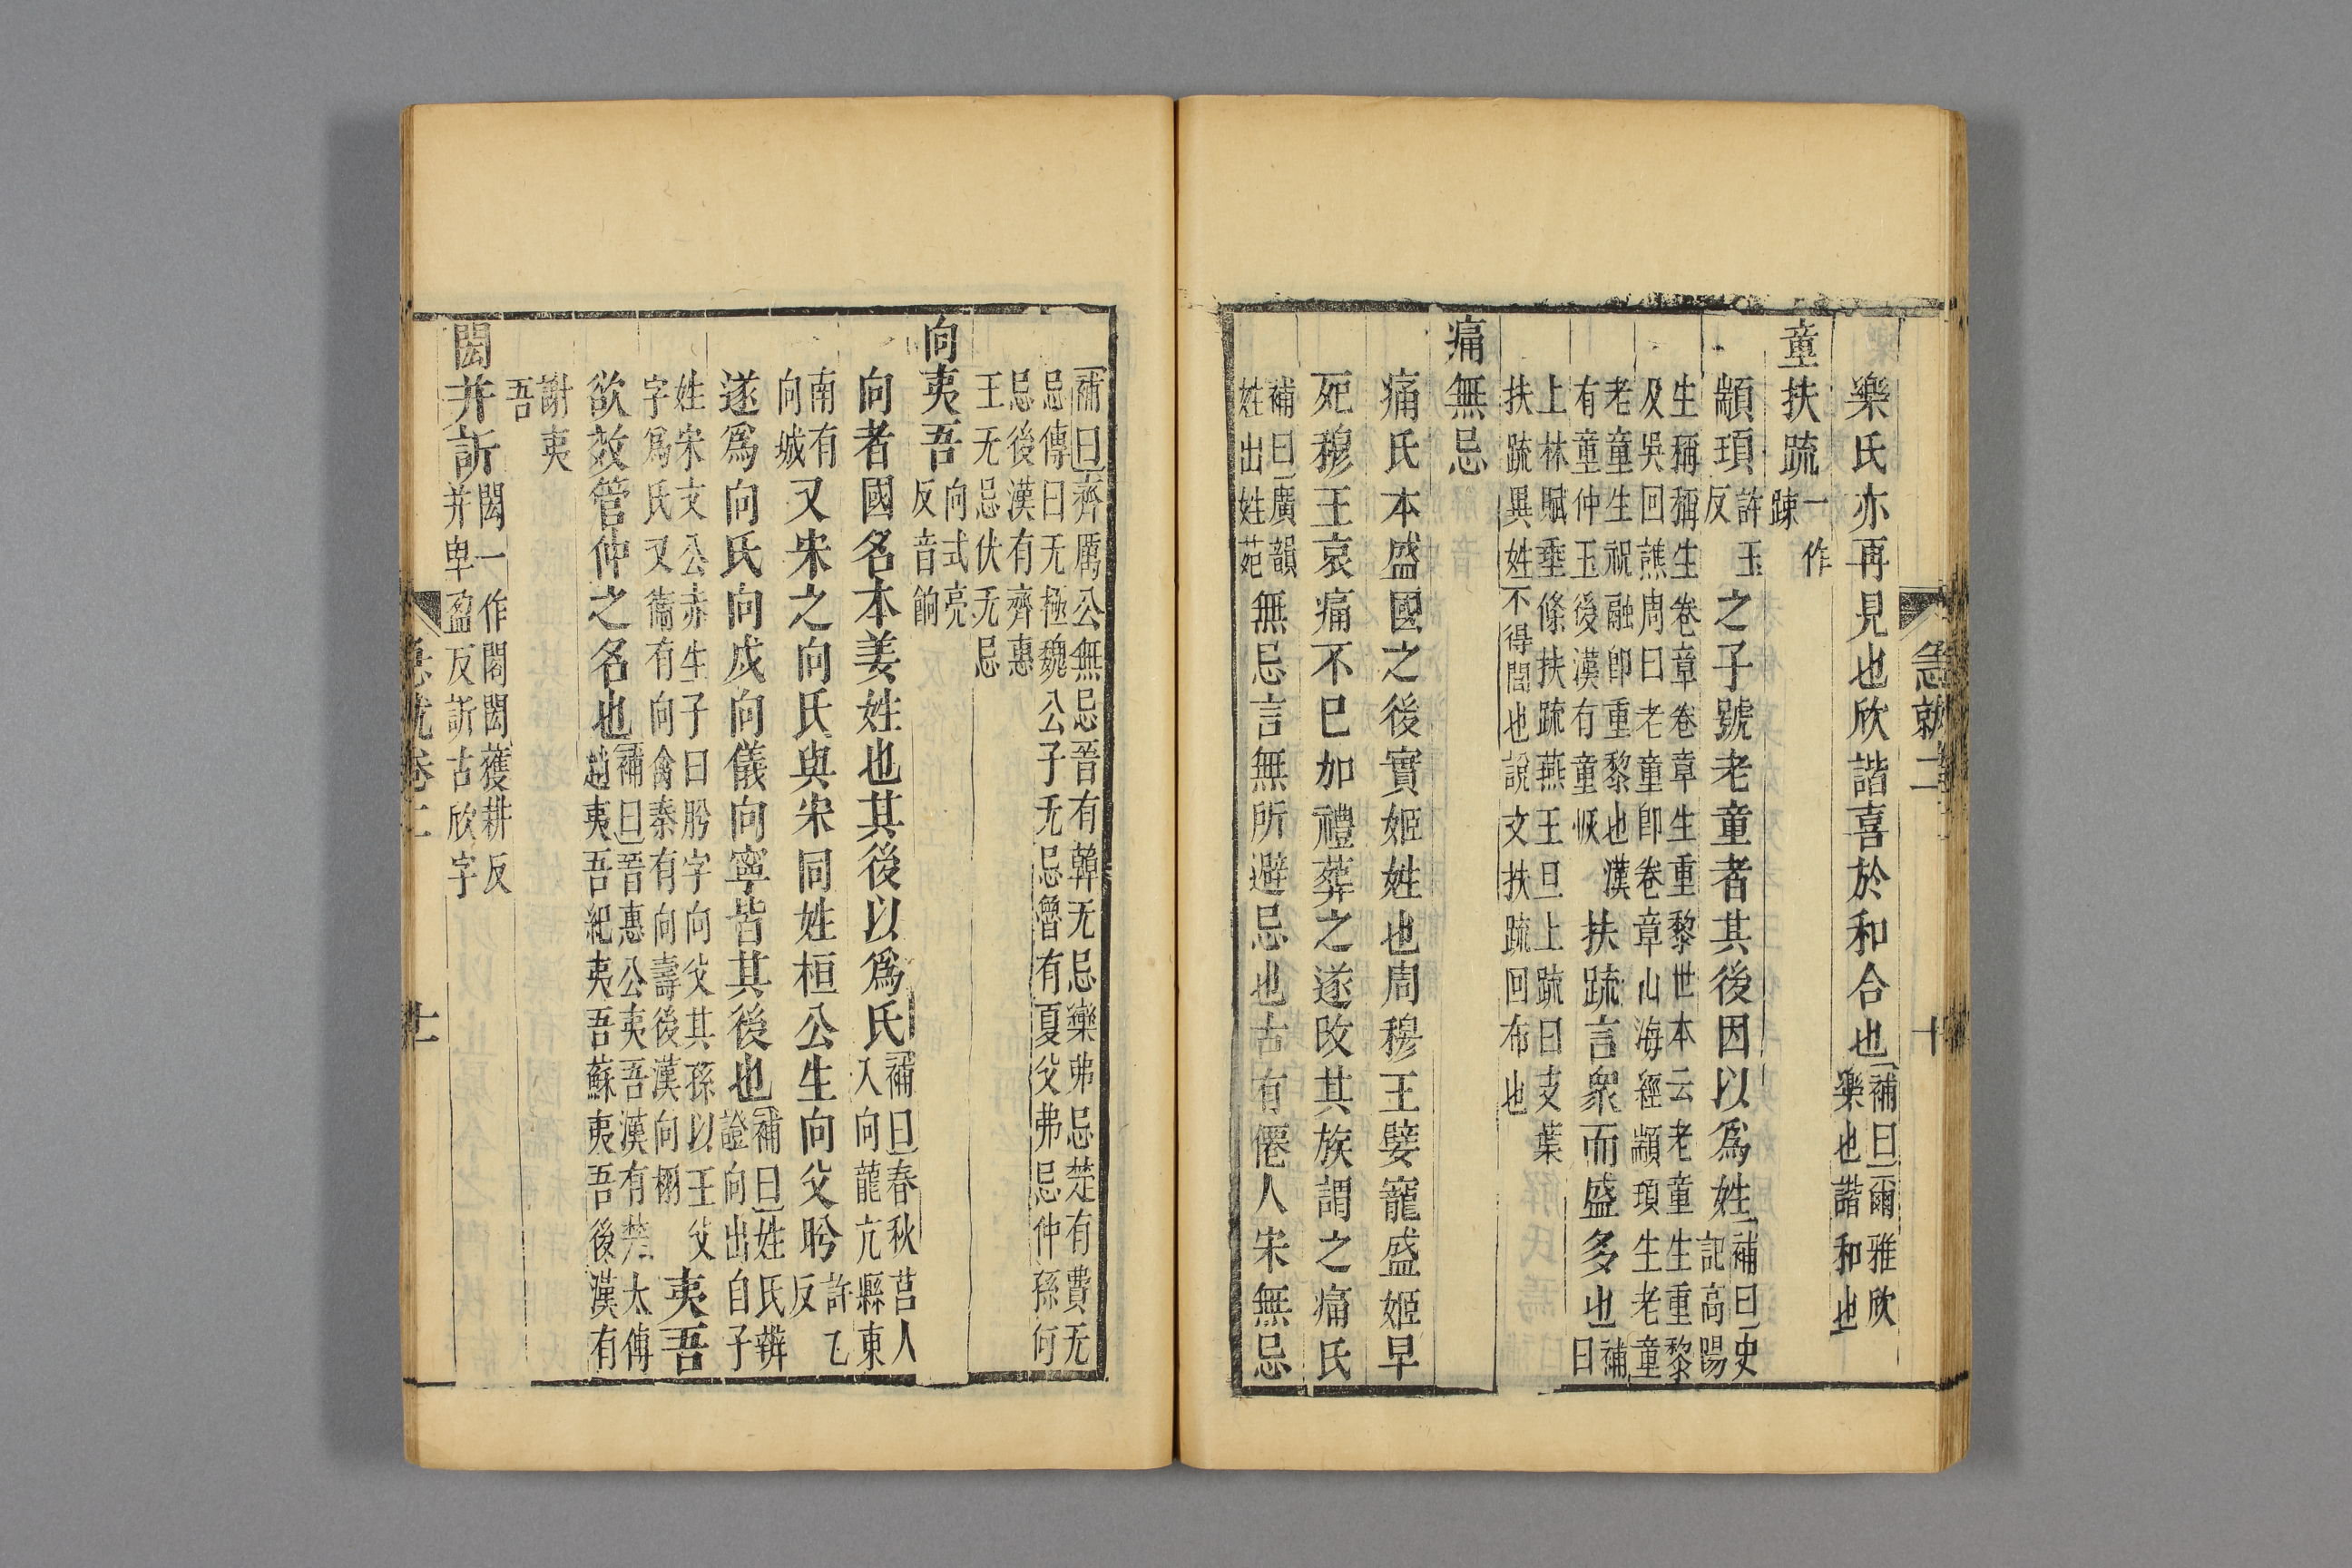 急就二 十
樂氏亦再見也欣諧喜於和合也補曰爾雅欣樂也諧和也
童扶疏一作踈
顓頊許玉反之子號老童者其後因以爲姓補曰史記高陽
生稱稱生卷章卷章生重黎世本云老童生重黎
及吳回譙周曰老童卽卷章山海經顓頊生老童
老童生祝融卽重黎也漢有童仲玉後漢有童恢扶疏言衆而盛多也補曰
上林賦垂條扶疏燕王旦上疏曰支葉
扶疏異姓不得間也說文扶疏回布也
痛無忌
痛氏本盛國之後實姬姓也周穆王嬖寵盛姬早
死穆王哀痛不已加禮葬之遂改其族謂之痛氏
補曰廣韻姓出姓苑無忌言無所避忌也古有僊人宋無忌
補曰齊厲公無忌晉有韓无忌欒弗忌楚有費无
忌傳曰无極魏公子无忌魯有夏父弗忌仲孫何
忌後漢有齊惠
王无忌伏无忌
向夷吾向式亮反音餉
向者國名本姜姓也其後以爲氏補曰春秋莒人入向龍亢縣東
南有向城又宋之向氏與宋同姓桓公生向父肸許乙反
遂爲向氏向戌向儀向寧皆其後也補曰姓氏辨證向出自子
姓宋文公赤生子曰肸字向父其孫以王父
字爲氏又衞有向禽秦有向壽後漢向栩夷吾
欲效管仲之名也補曰晉惠公夷吾漢有楚太傅趙夷吾紀夷吾蘇夷吾後漢有
謝夷
吾
閎并訢閎一作閤閎獲耕反并卑盈反訢古欣字
急就卷二 十一